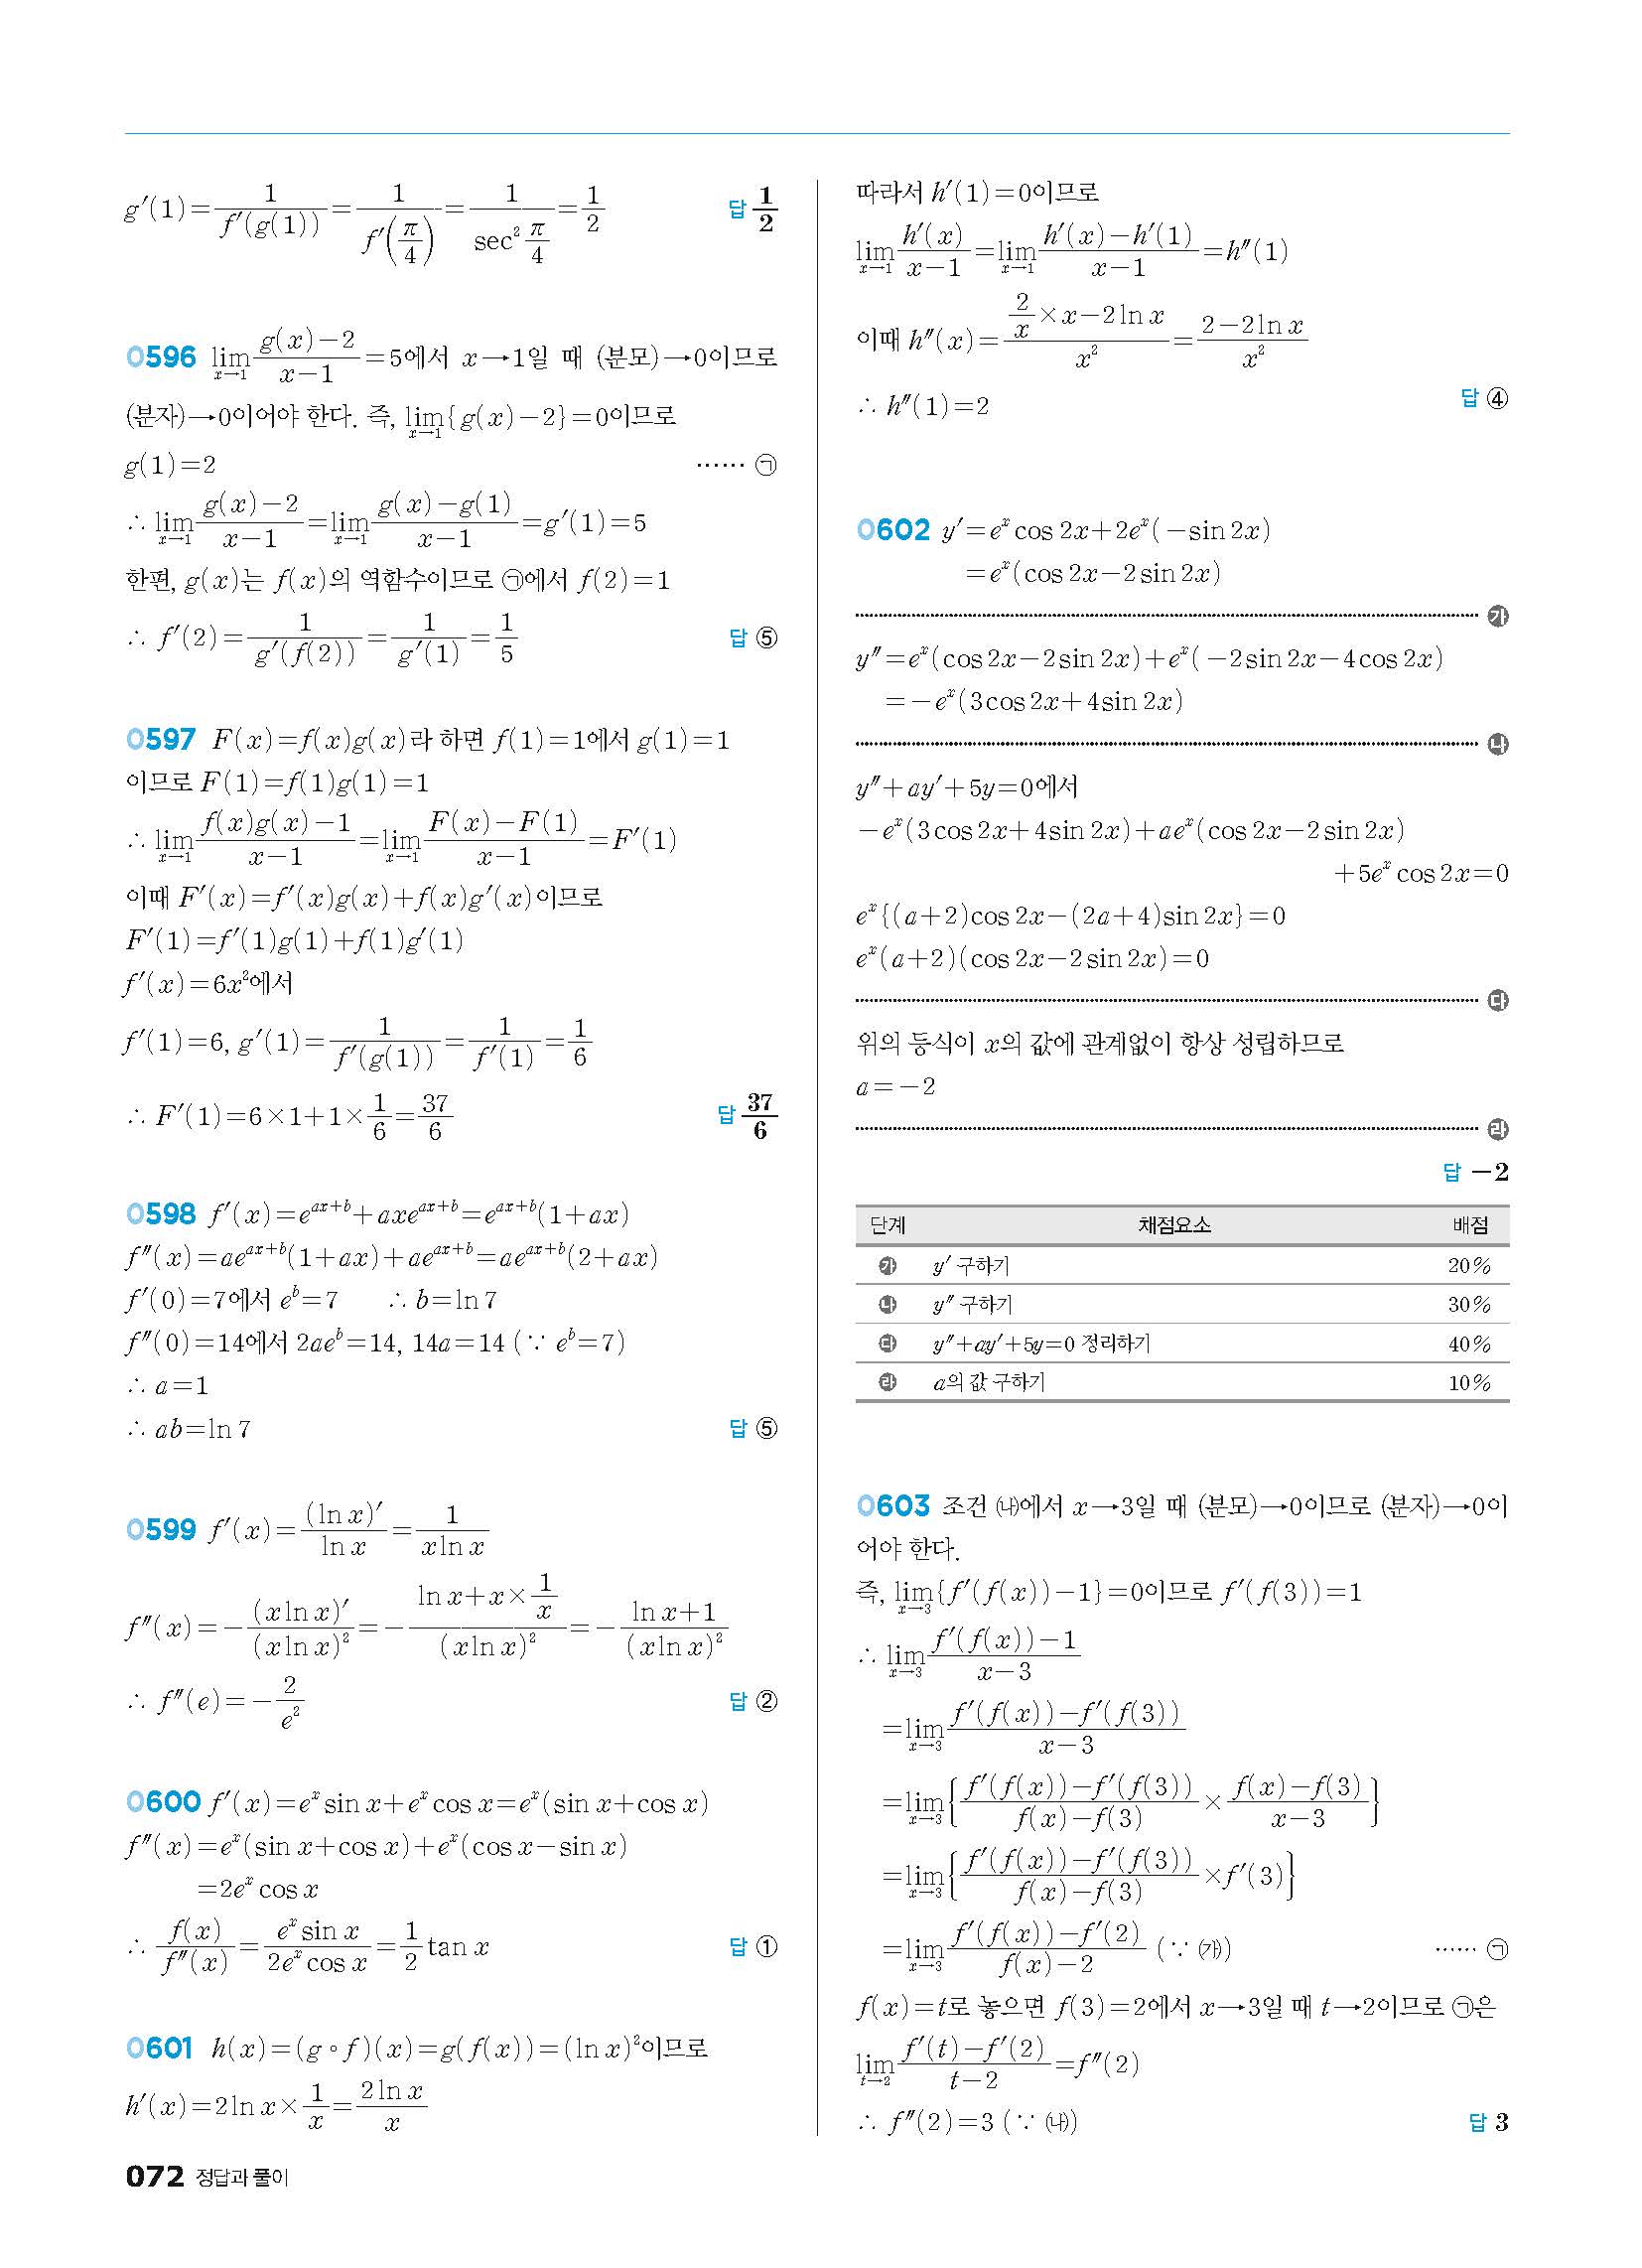 g′(1)=1/f′(g(1))=1/f′(π/4)=1/sec² π/4=1/2 답 1/2
0596 lim_{x→1} (g(x)−2)/(x−1)=5에서 x→1일 때 (분모)→0이므로
(분자)→0이어야 한다. 즉, lim_{x→1}{g(x)−2}=0이므로
g(1)=2 …… ㉠
∴ lim_{x→1} (g(x)−2)/(x−1)=lim_{x→1} (g(x)−g(1))/(x−1)=g′(1)=5
한편, g(x)는 f(x)의 역함수이므로 ㉠에서 f(2)=1
∴ f′(2)=1/g′(f(2))=1/g′(1)=1/5 답 ⑤
0597 F(x)=f(x)g(x)라 하면 f(1)=1에서 g(1)=1
이므로 F(1)=f(1)g(1)=1
∴ lim_{x→1} (f(x)g(x)−1)/(x−1)=lim_{x→1} (F(x)−F(1))/(x−1)=F′(1)
이때 F′(x)=f′(x)g(x)+f(x)g′(x)이므로
F′(1)=f′(1)g(1)+f(1)g′(1)
f′(x)=6x²에서
f′(1)=6, g′(1)=1/f′(g(1))=1/f′(1)=1/6
∴ F′(1)=6×1+1×1/6=37/6 답 37/6
0598 f′(x)=e^{ax+b}+axe^{ax+b}=e^{ax+b}(1+ax)
f″(x)=ae^{ax+b}(1+ax)+ae^{ax+b}=ae^{ax+b}(2+ax)
f′(0)=7에서 e^b=7 ∴ b=ln 7
f″(0)=14에서 2ae^b=14, 14a=14 (∵ e^b=7)
∴ a=1
∴ ab=ln 7 답 ⑤
0599 f′(x)=(ln x)′/ln x=1/(x ln x)
f″(x)=−(x ln x)′/(x ln x)²=−(ln x+x×1/x)/(x ln x)²=−(ln x+1)/(x ln x)²
∴ f″(e)=−2/e² 답 ②
0600 f′(x)=e^x sin x+e^x cos x=e^x(sin x+cos x)
f″(x)=e^x(sin x+cos x)+e^x(cos x−sin x)
=2e^x cos x
∴ f(x)/f″(x)=e^x sin x/2e^x cos x=1/2 tan x 답 ①
0601 h(x)=(g∘f)(x)=g(f(x))=(ln x)²이므로
h′(x)=2 ln x×1/x=2 ln x/x
072 정답과 풀이
따라서 h′(1)=0이므로
lim_{x→1} h′(x)/(x−1)=lim_{x→1} (h′(x)−h′(1))/(x−1)=h″(1)
이때 h″(x)=(2/x×x−2 ln x)/x²=(2−2 ln x)/x²
∴ h″(1)=2 답 ④
0602 y′=e^x cos 2x+2e^x(−sin 2x)
=e^x(cos 2x−2 sin 2x)
㉮
y″=e^x(cos 2x−2 sin 2x)+e^x(−2 sin 2x−4 cos 2x)
=−e^x(3 cos 2x+4 sin 2x)
㉯
y″+ay′+5y=0에서
−e^x(3 cos 2x+4 sin 2x)+ae^x(cos 2x−2 sin 2x)
+5e^x cos 2x=0
e^x{(a+2)cos 2x−(2a+4)sin 2x}=0
e^x(a+2)(cos 2x−2 sin 2x)=0
㉰
위의 등식이 x의 값에 관계없이 항상 성립하므로
a=−2
㉱
답 −2
단계 채점요소 배점
㉮ y′ 구하기 20%
㉯ y″ 구하기 30%
㉰ y″+ay′+5y=0 정리하기 40%
㉱ a의 값 구하기 10%
0603 조건 ㈏에서 x→3일 때 (분모)→0이므로 (분자)→0이
어야 한다.
즉, lim_{x→3}{f′(f(x))−1}=0이므로 f′(f(3))=1
∴ lim_{x→3} (f′(f(x))−1)/(x−3)
=lim_{x→3} (f′(f(x))−f′(f(3)))/(x−3)
=lim_{x→3}{(f′(f(x))−f′(f(3)))/(f(x)−f(3))×(f(x)−f(3))/(x−3)}
=lim_{x→3}{(f′(f(x))−f′(f(3)))/(f(x)−f(3))×f′(3)}
=lim_{x→3} (f′(f(x))−f′(2))/(f(x)−2) (∵ ㈎) …… ㉠
f(x)=t로 놓으면 f(3)=2에서 x→3일 때 t→2이므로 ㉠은
lim_{t→2} (f′(t)−f′(2))/(t−2)=f″(2)
∴ f″(2)=3 (∵ ㈏) 답 3